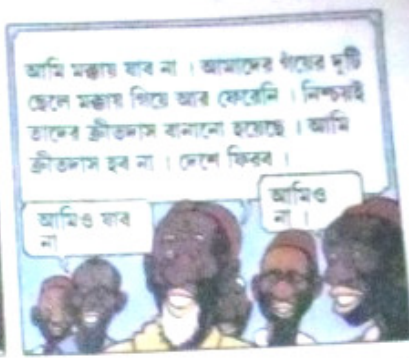 আমি মক্কায় যাব না । আমাদের গাঁয়ের দুটি
ছেলে মক্কায় গিয়ে আর ফেরেনি । নিশ্চয়ই
তাদের ক্রীতদাস বানানো হয়েছে । আমি
ক্রীতদাস হব না । দেশে ফিরব ।
আমিও যাব
না
আমিও
না ।